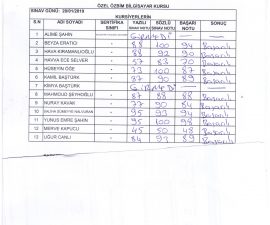 ÖZEL ÖZBİM BİLGİSAYAR KURSU
SINAV GÜNÜ: 20/01/2010
KURSİYERLERİN
S.N ADI SOYADI SERTİFİKA SINIFI YAZILI SINAV NOTU SÖZLÜ SINAV NOTU BAŞARI NOTU SONUÇ
1 ALİME ŞAHİN - GİRMEDİ
2 BEYZA ERATICI - 88 100 94 Başarılı
3 HAVA KIRAMANOĞLU - 88 92 90 Başarılı
4 HAVVA ECE SELVER - 57 83 70 Başarılı
5 HÜSEYİN ÖĞE - 73 100 87 Başarılı
6 KAMİL BAŞTÜRK - 87 90 89 Başarılı
7 KİMYA BAŞTÜRK - GİRMEDİ
8 MAHMOUD ŞEYHOĞLU - 87 88 88 Başarılı
9 NURAY KAVAK - 77 90 84 Başarılı
10 - 95 93 94 Başarılı
11 YUNUS EMRE ŞAHİN - 95 100 98 Başarılı
12 MERVE KAPUCU - 45 50 48 Başarılı
13 UĞUR CANLI - 84 93 89 Başarılı